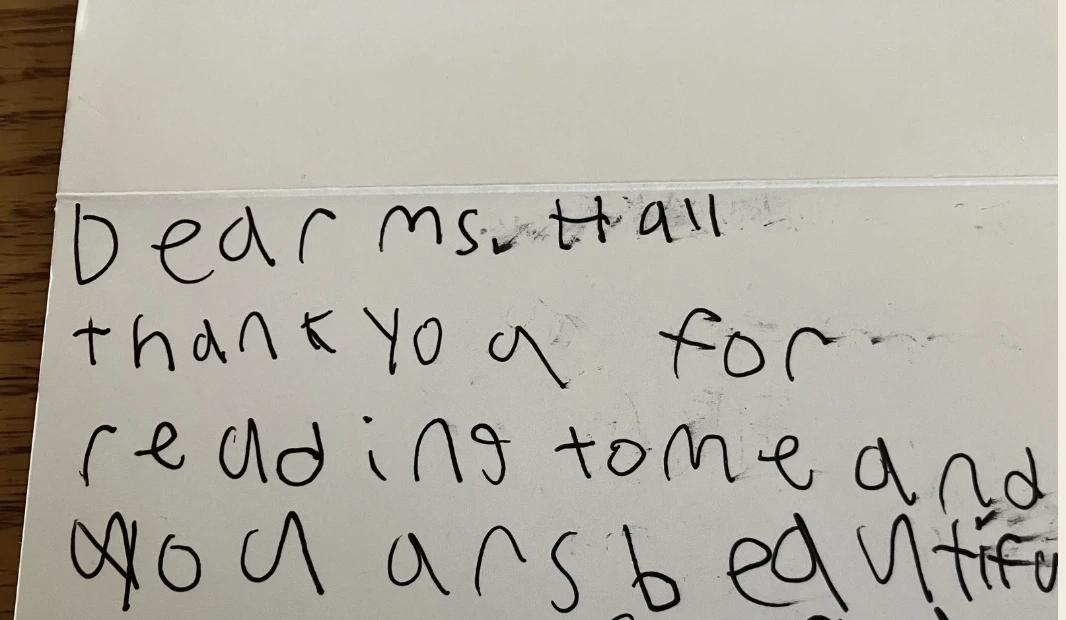 Dear ms. Hall
thank you for
reading to me and
you ars beautifu